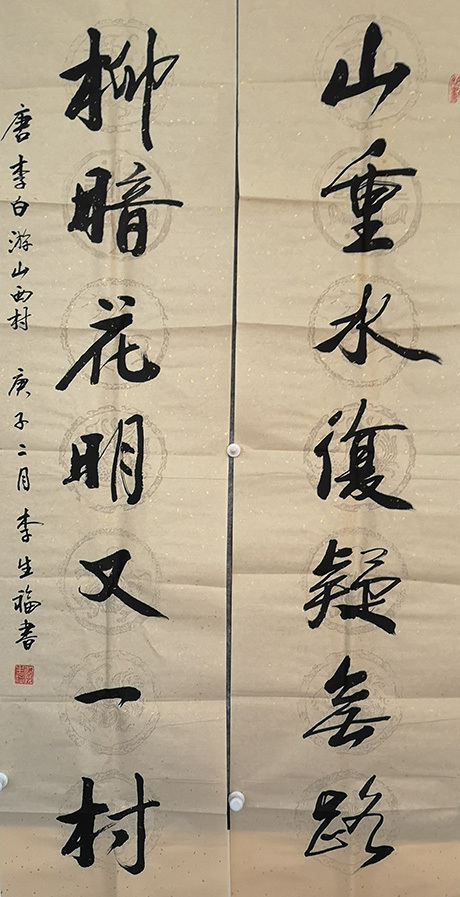 山重水復疑無路
柳暗花明又一村
唐李白游山西村 庚子二月李生福書